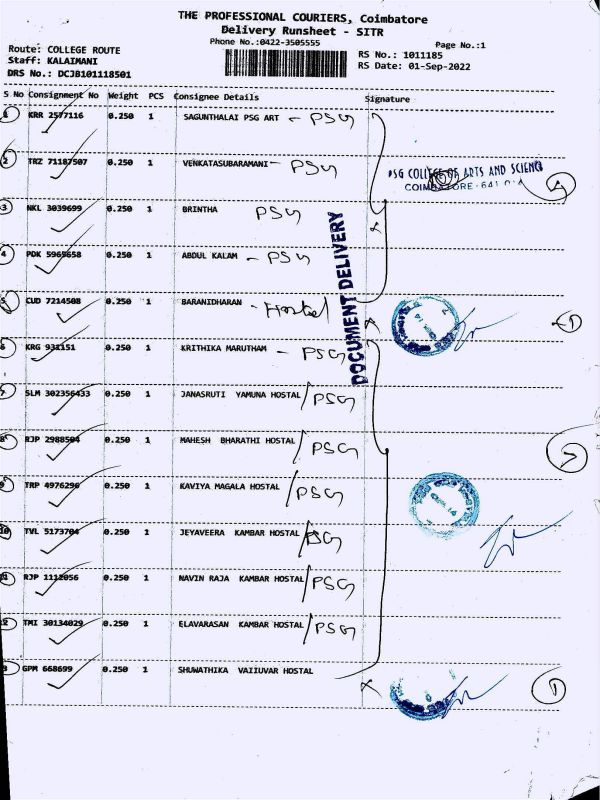 THE PROFESSIONAL COURIERS, Coimbatore
Delivery Runsheet - SITR
Phone No.:0422-3505555
Page No.:1
Route: COLLEGE ROUTE
Staff: KALAIMANI
DRS No.: DCJB101118501
RS No.: 1011185
RS Date: 01-Sep-2022
S No Consignment No Weight PCS Consignee Details Signature
1 KRR 2577116 0.250 1 SAGUNTHALAI PSG ART - PSG
2 TRZ 71187507 0.250 1 VENKATASUBARAMANI - PSG
PSG COLLEGE OF ARTS AND SCIENCE
COIMBATORE - 641 014
4
3 NKL 3039699 0.250 1 BRINTHA PSG
4 PDK 5969658 0.250 1 ABDUL KALAM - PSG
DOCUMENT DELIVERY
5 CUD 7214508 0.250 1 BARANIDHARAN - Hostel
1
6 KRG 931151 0.250 1 KRITHIKA MARUTHAM - PSG
7 SLM 302356433 0.250 1 JANASRUTI YAMUNA HOSTAL / PSG
8 RJP 2988504 0.250 1 MAHESH BHARATHI HOSTAL / PSG
7
9 TRP 4976296 0.250 1 KAVIYA MAGALA HOSTAL / PSG
10 TVL 5173704 0.250 1 JEYAVEERA KAMBAR HOSTAL / PSG
11 RJP 1112056 0.250 1 NAVIN RAJA KAMBAR HOSTAL / PSG
12 TMI 30134029 0.250 1 ELAVARASAN KAMBAR HOSTAL / PSG
13 GPM 668699 0.250 1 SHUWATHIKA VAIIUVAR HOSTAL
1